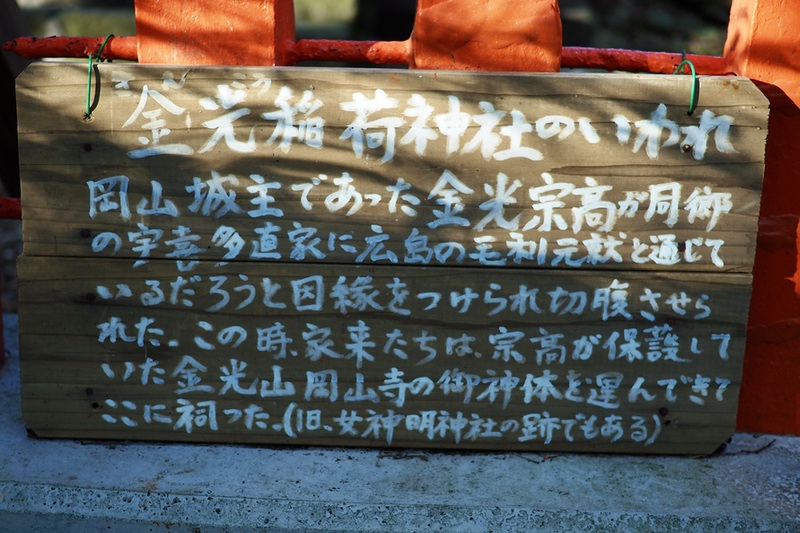 金光稲荷神社のいわれ
岡山城主であった金光宗高が同郷
の宇喜多直家に広島の毛利元就と通じて
いるだろうと因縁をつけられ切腹させら
れた。この時、家来たちは、宗高が保護して
いた金光山岡山寺の御神体を運んできて
ここに祠った。(旧、女神明神社の跡でもある)